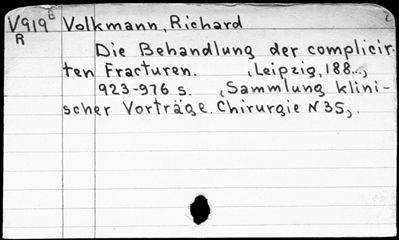 V919⁶ Volkmann, Richard
R
Die Behandlung der complicir-
ten Fracturen. (Leipzig, 188..,)
923-976 s. (Sammlung klini-
scher Vorträge. Chirurgie N 35,).